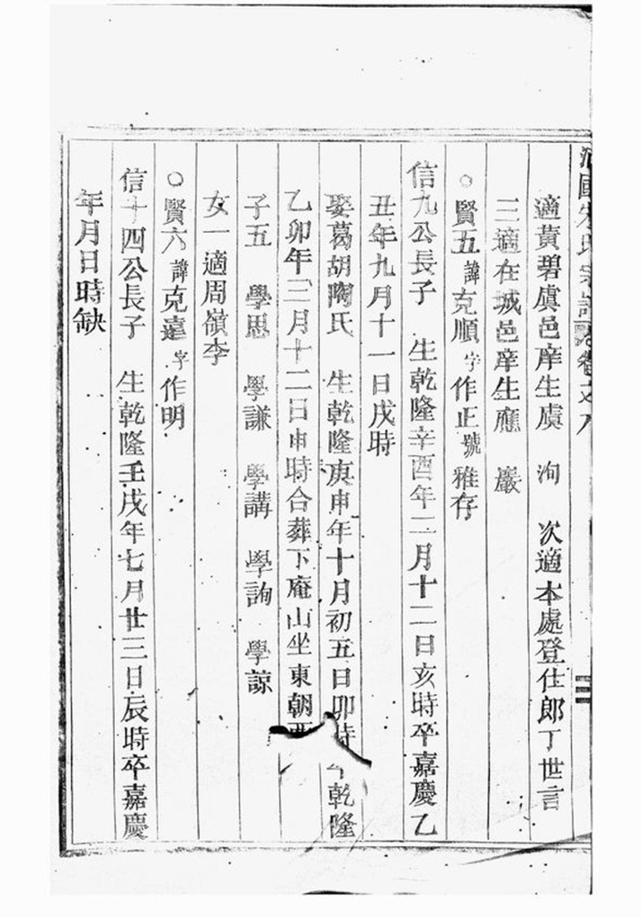 國宋氏宗譜卷之八
適黃碧虞邑庠生虞洵　次適本處登仕郎丁世言
三適在城邑庠生應巖
○賢五諱克順字作正號雅存
信九公長子　生乾隆辛酉年二月十二日亥時卒嘉慶乙
丑年九月十一日戌時
娶葛胡陶氏　生乾隆庚申年十月初五日卯時卒乾隆
乙卯年三月十二日申時合葬下庵山坐東朝西
子五　學思　學謙　學講　學詢　學諒
女一適周嶺李
○賢六諱克遠字作明
信十四公長子　生乾隆壬戌年七月廿三日辰時卒嘉慶
年月日時缺